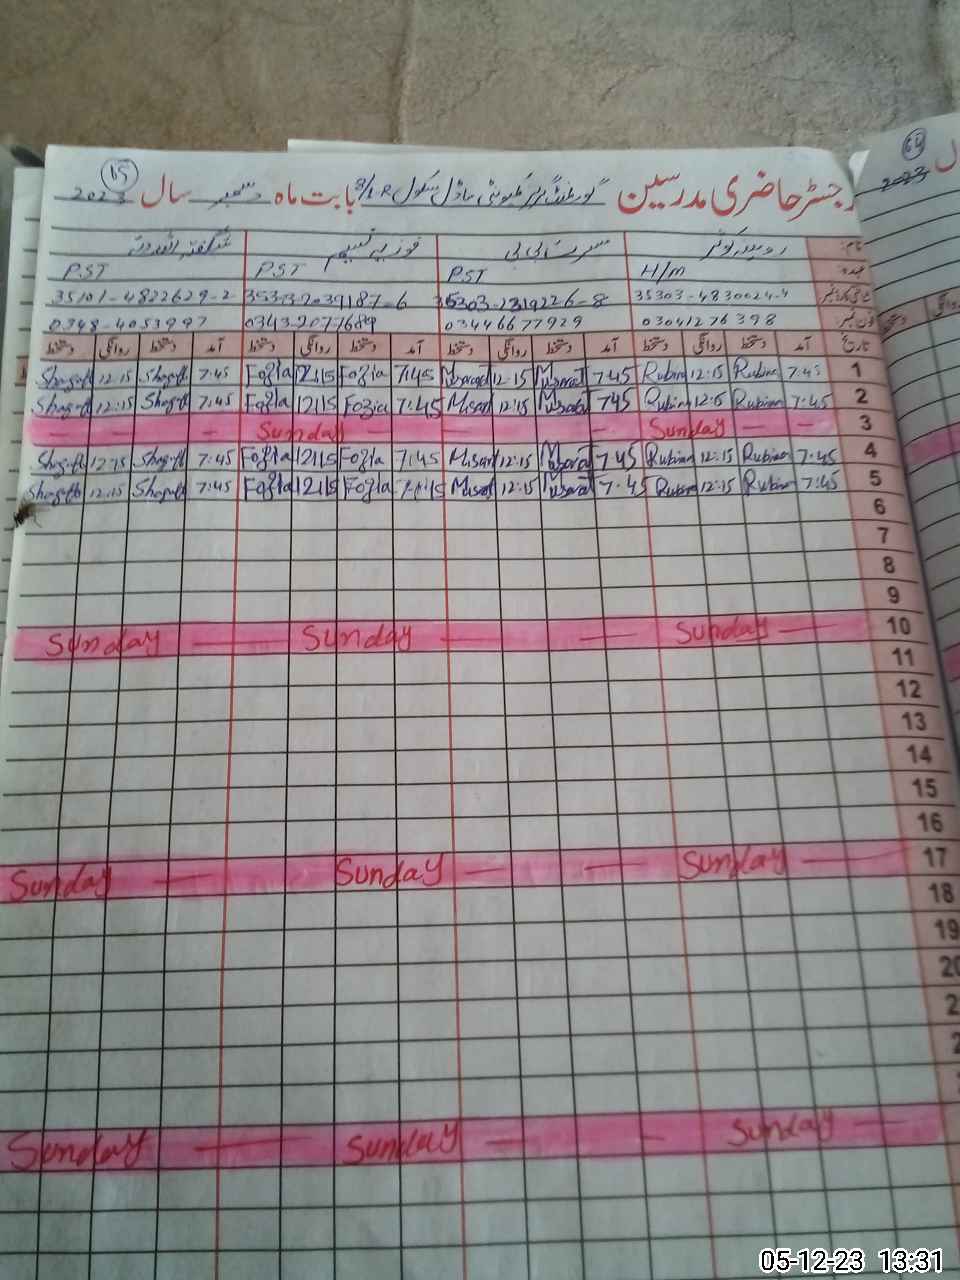 15
64
رجسٹر حاضری مدرسین گورنمنٹ گرلز کمیونٹی ماڈل سکول 8/1R بابت ماہ دسمبر سال 2023
2023
نام: روبینہ کوثر مسرت بی بی فوزیہ نسیم شگفتہ اللہ دتہ
عہدہ H/m PST PST PST
35303-4830024-4 35303-2319226-8 35101-4822629-2
فون نمبر 03041276398 03446677929 0343-2077689 0348-4053997
تاریخ آمد دستخط روانگی دستخط آمد دستخط روانگی دستخط آمد دستخط روانگی دستخط آمد دستخط روانگی دستخط
1 7:45 Rubina 12:15 Rubina 7:45 Musarat 12:15 Musarat 7:45 Fozia 12:15 Fozia 7:45 Shagufta 12:15 Shagufta
2 7:45 Rubina 12:15 Rubina 7:45 Musarat 12:15 Musarat 7:45 Fozia 12:15 Fozia 7:45 Shagufta 12:15 Shagufta
3 Sunday Sunday
4 7:45 Rubina 12:15 Rubina 7:45 Musarat 12:15 Musarat 7:45 Fozia 12:15 Fozia 7:45 Shagufta 12:15 Shagufta
5 7:45 Rubina 12:15 Rubina 7:45 Musarat 12:15 Musarat 7:45 Fozia 12:15 Fozia 7:45 Shagufta 12:15 Shagufta
6
7
8
9
10 Sunday Sunday Sunday
11
12
13
14
15
16
17 Sunday Sunday Sunday
18
19
20
Sunday Sunday Sunday
05-12-23 13:31